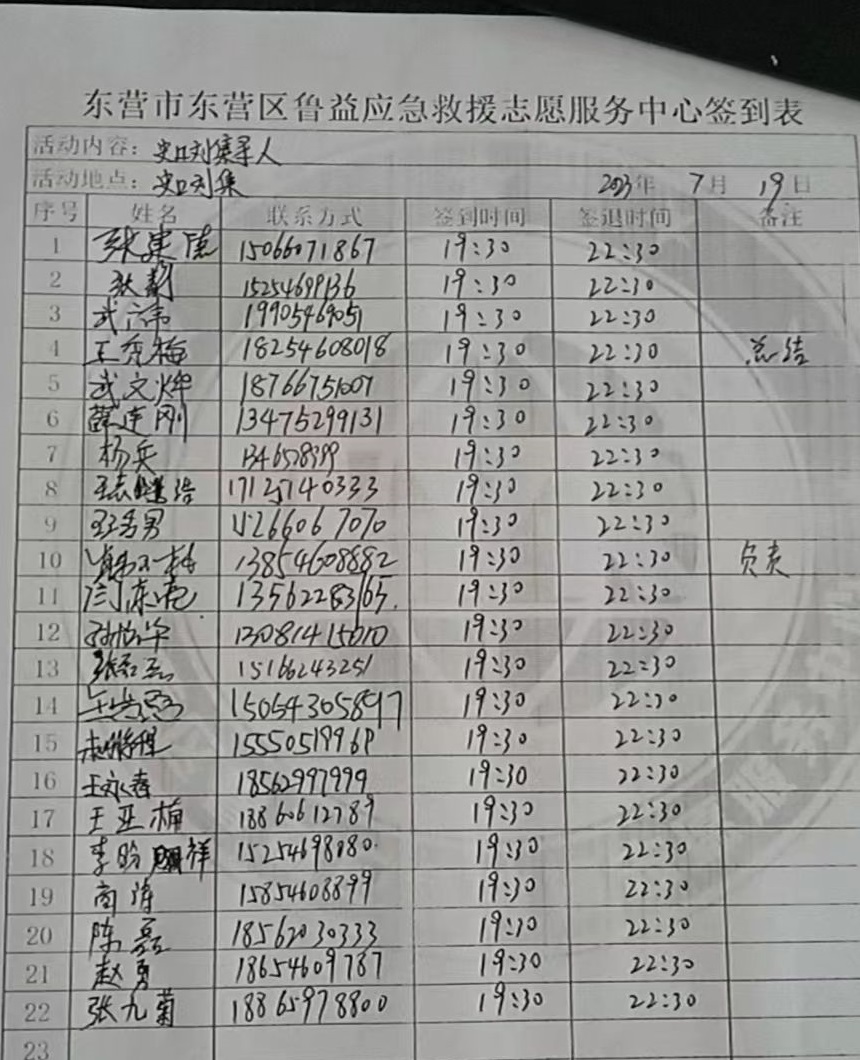 东营市东营区鲁益应急救援志愿服务中心签到表
活动内容：史口刘集寻人
活动地点：史口刘集 2023年 7月 19日
序号 姓名 联系方式 签到时间 签退时间 备注
1 张建 15066071867 19:30 22:30
2 15254699136 19:30 22:30
3 武 19905469051 19:30 22:30
4 王秀梅 18254608018 19:30 22:30 总结
5 武文烨 18766751007 19:30 22:30
6 薛连刚 13475299131 19:30 22:30
7 杨兵 19:30 22:30
8 17125140333 19:30 22:30
9 15266067070 19:30 22:30
10 13854608882 19:30 22:30 负责
11 闫东亮 13562283165. 19:30 22:30
12 19:30 22:30
13 张 15166243251 19:30 22:30
14 15054305897 19:30 22:30
15 19:30 22:30
16 王永春 18562997999 19:30 22:30
17 王亚楠 19:30 22:30
18 李 祥 15254698080 19:30 22:30
19 商涛 15854608899 19:30 22:30
20 陈磊 18562030333 19:30 22:30
21 赵勇 18654609787 19:30 22:30
22 张九菊 18865978800 19:30 22:30
23